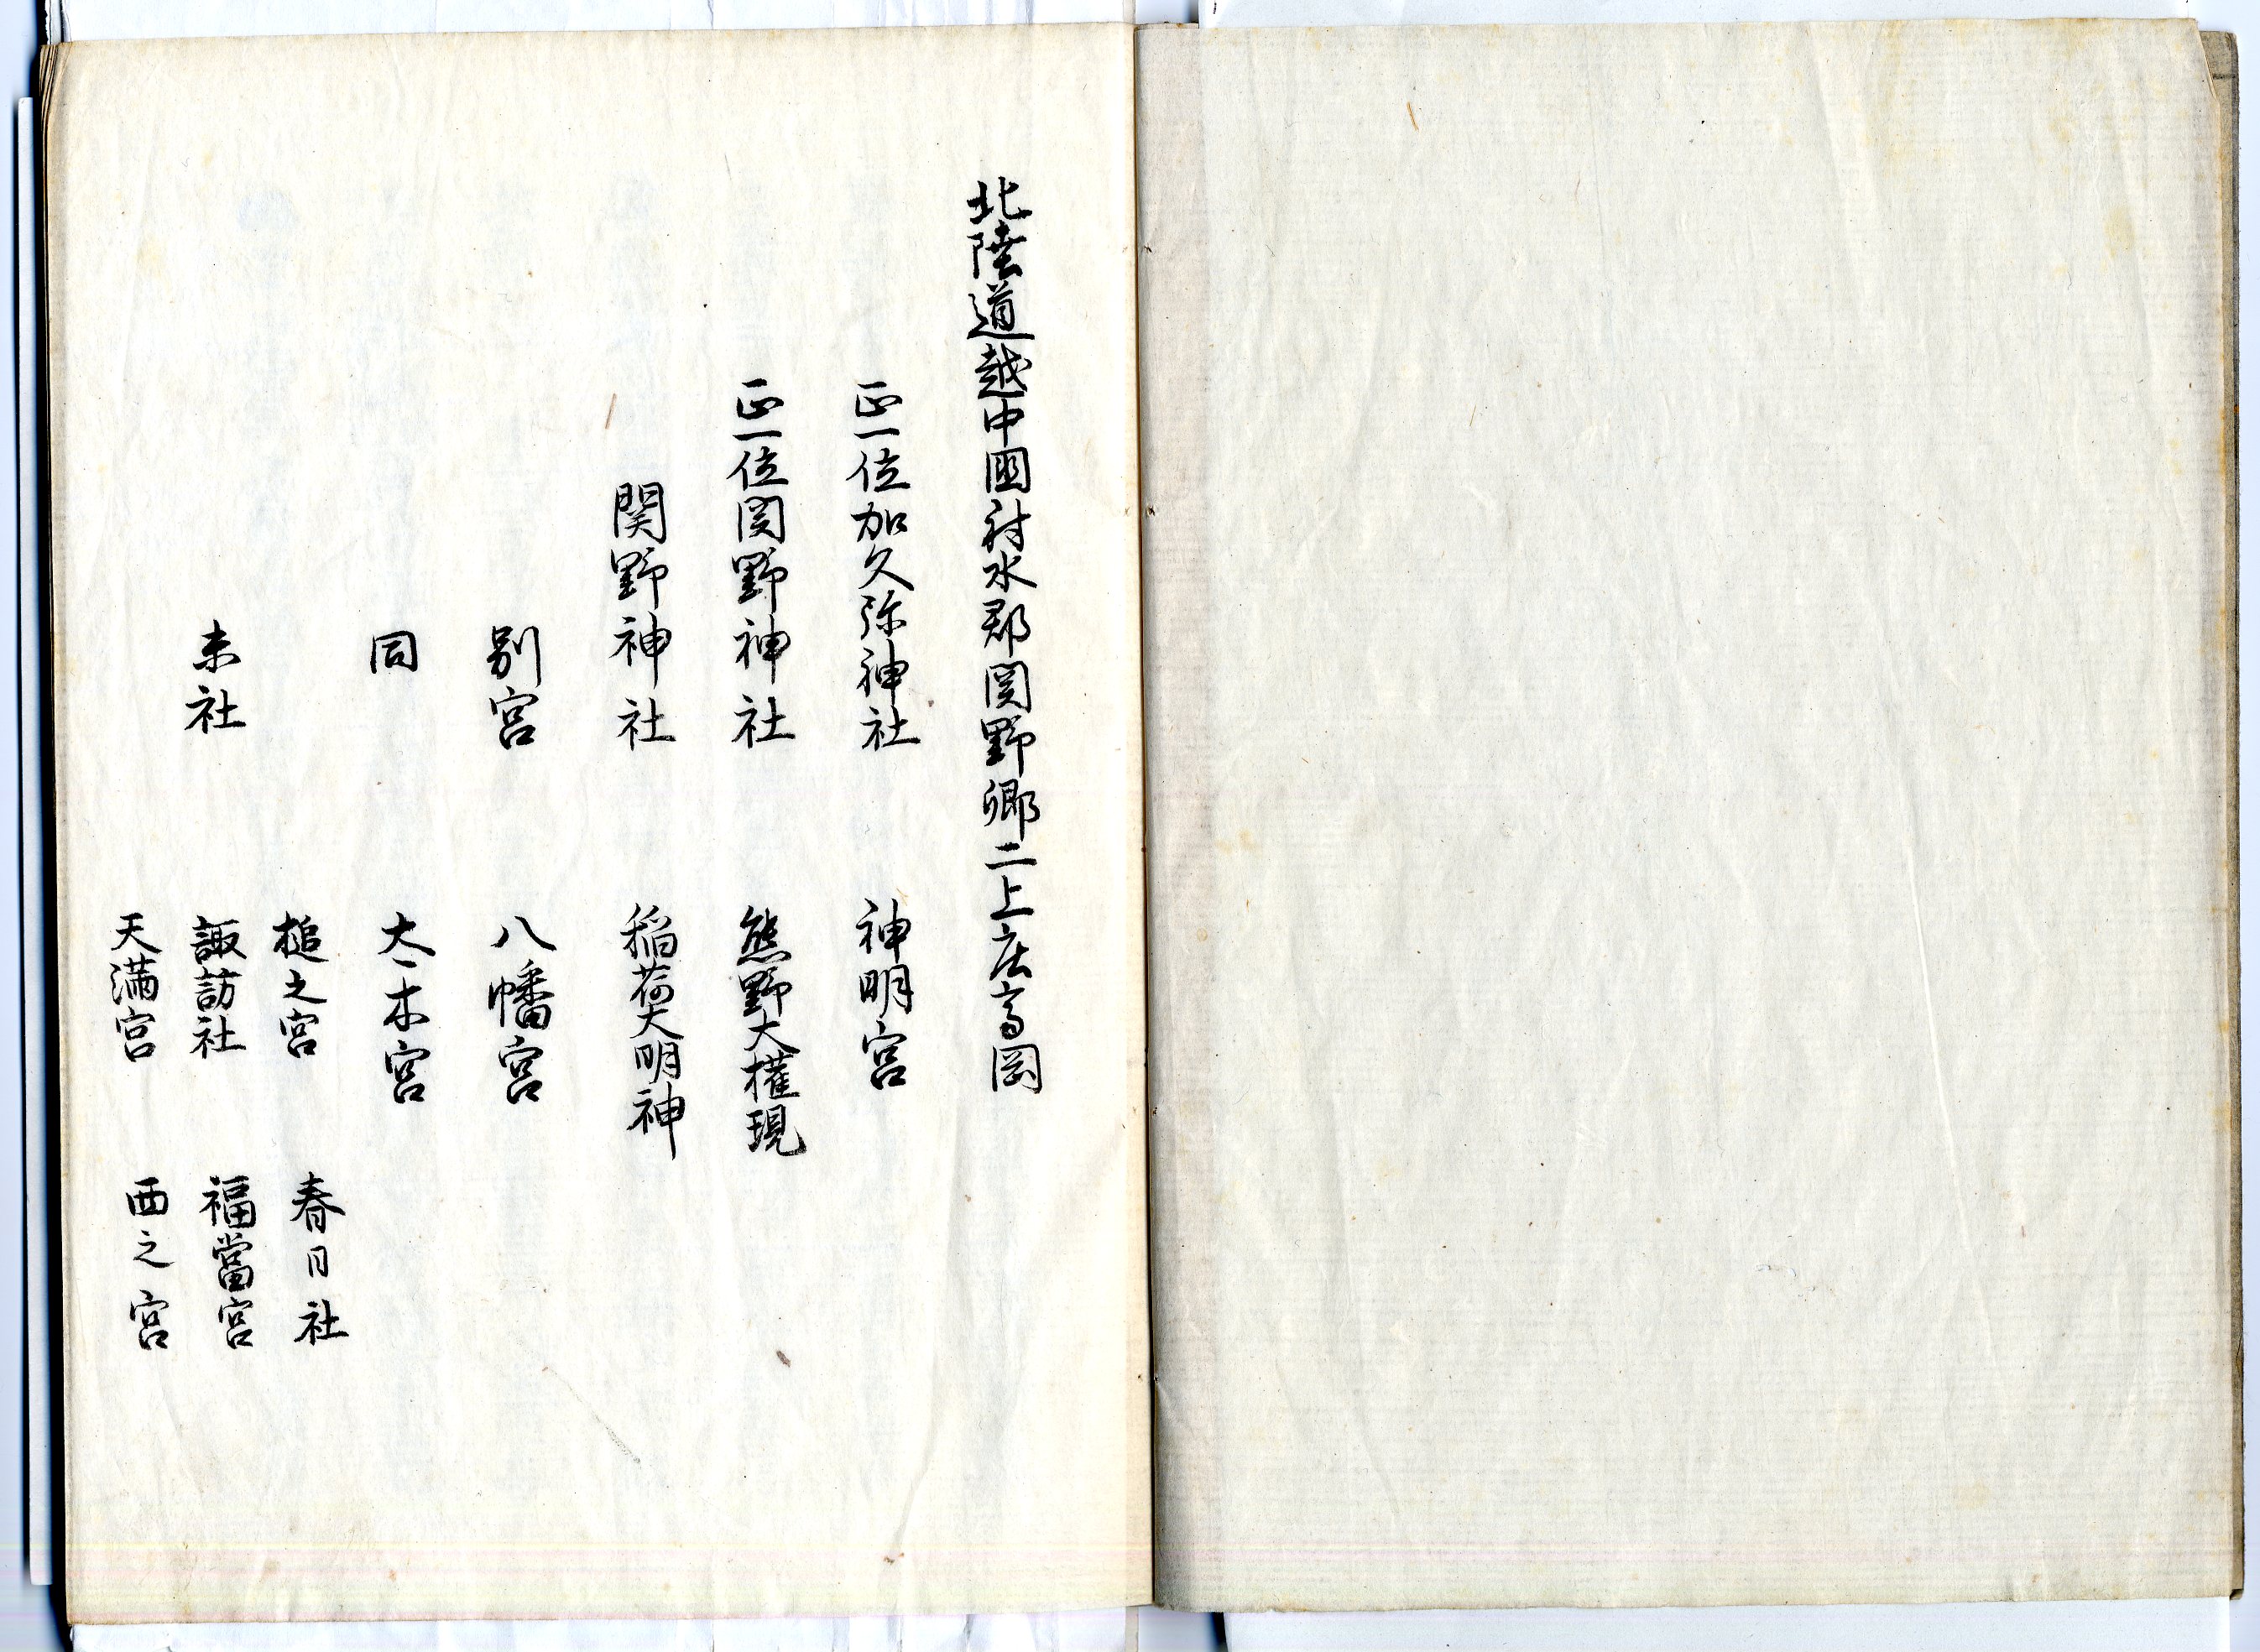 北陸道越中國射水郡関野郷二上庄高岡
正一位加久弥神社　神明宮
正一位関野神社　熊野大權現
関野神社　稲荷大明神
別宮　八幡宮
同　大木宮
槌之宮　春日社
末社　諏訪社　福當宮
天満宮　西之宮